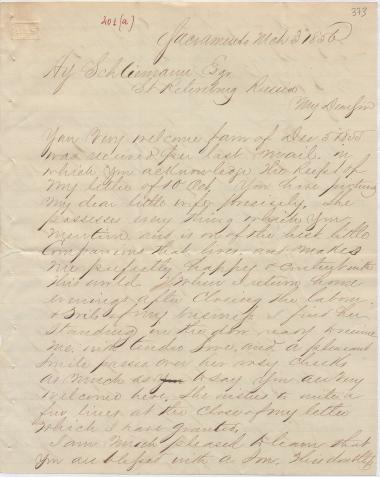 201 (a)
373
Sacramento Mch 5 1856
Hy Schliemann Esqr
St Petersburg Russia
My Dear Sir
Your Very welcome favor of Dec 5 1855
was received per last mail, in
which you acknowledge the receipt of
My letter of 10 Oct. You have pictured
my dear little wife precisely. She
possesses every thing which you
mention and is one of the best little
Companions that lives and makes
me perfectly happy & contented with
this world. When I return home
evenings after closing the labour
of my business I find her
standing in the door ready to receive
me, with tender love, and a pleasant
smile passes over her rosy cheeks
as much as to say you are very
welcome here. She wishes to write a
few lines at the close of my letter
which I have granted.
I am much pleased to learn that
you are blessed with a Son.